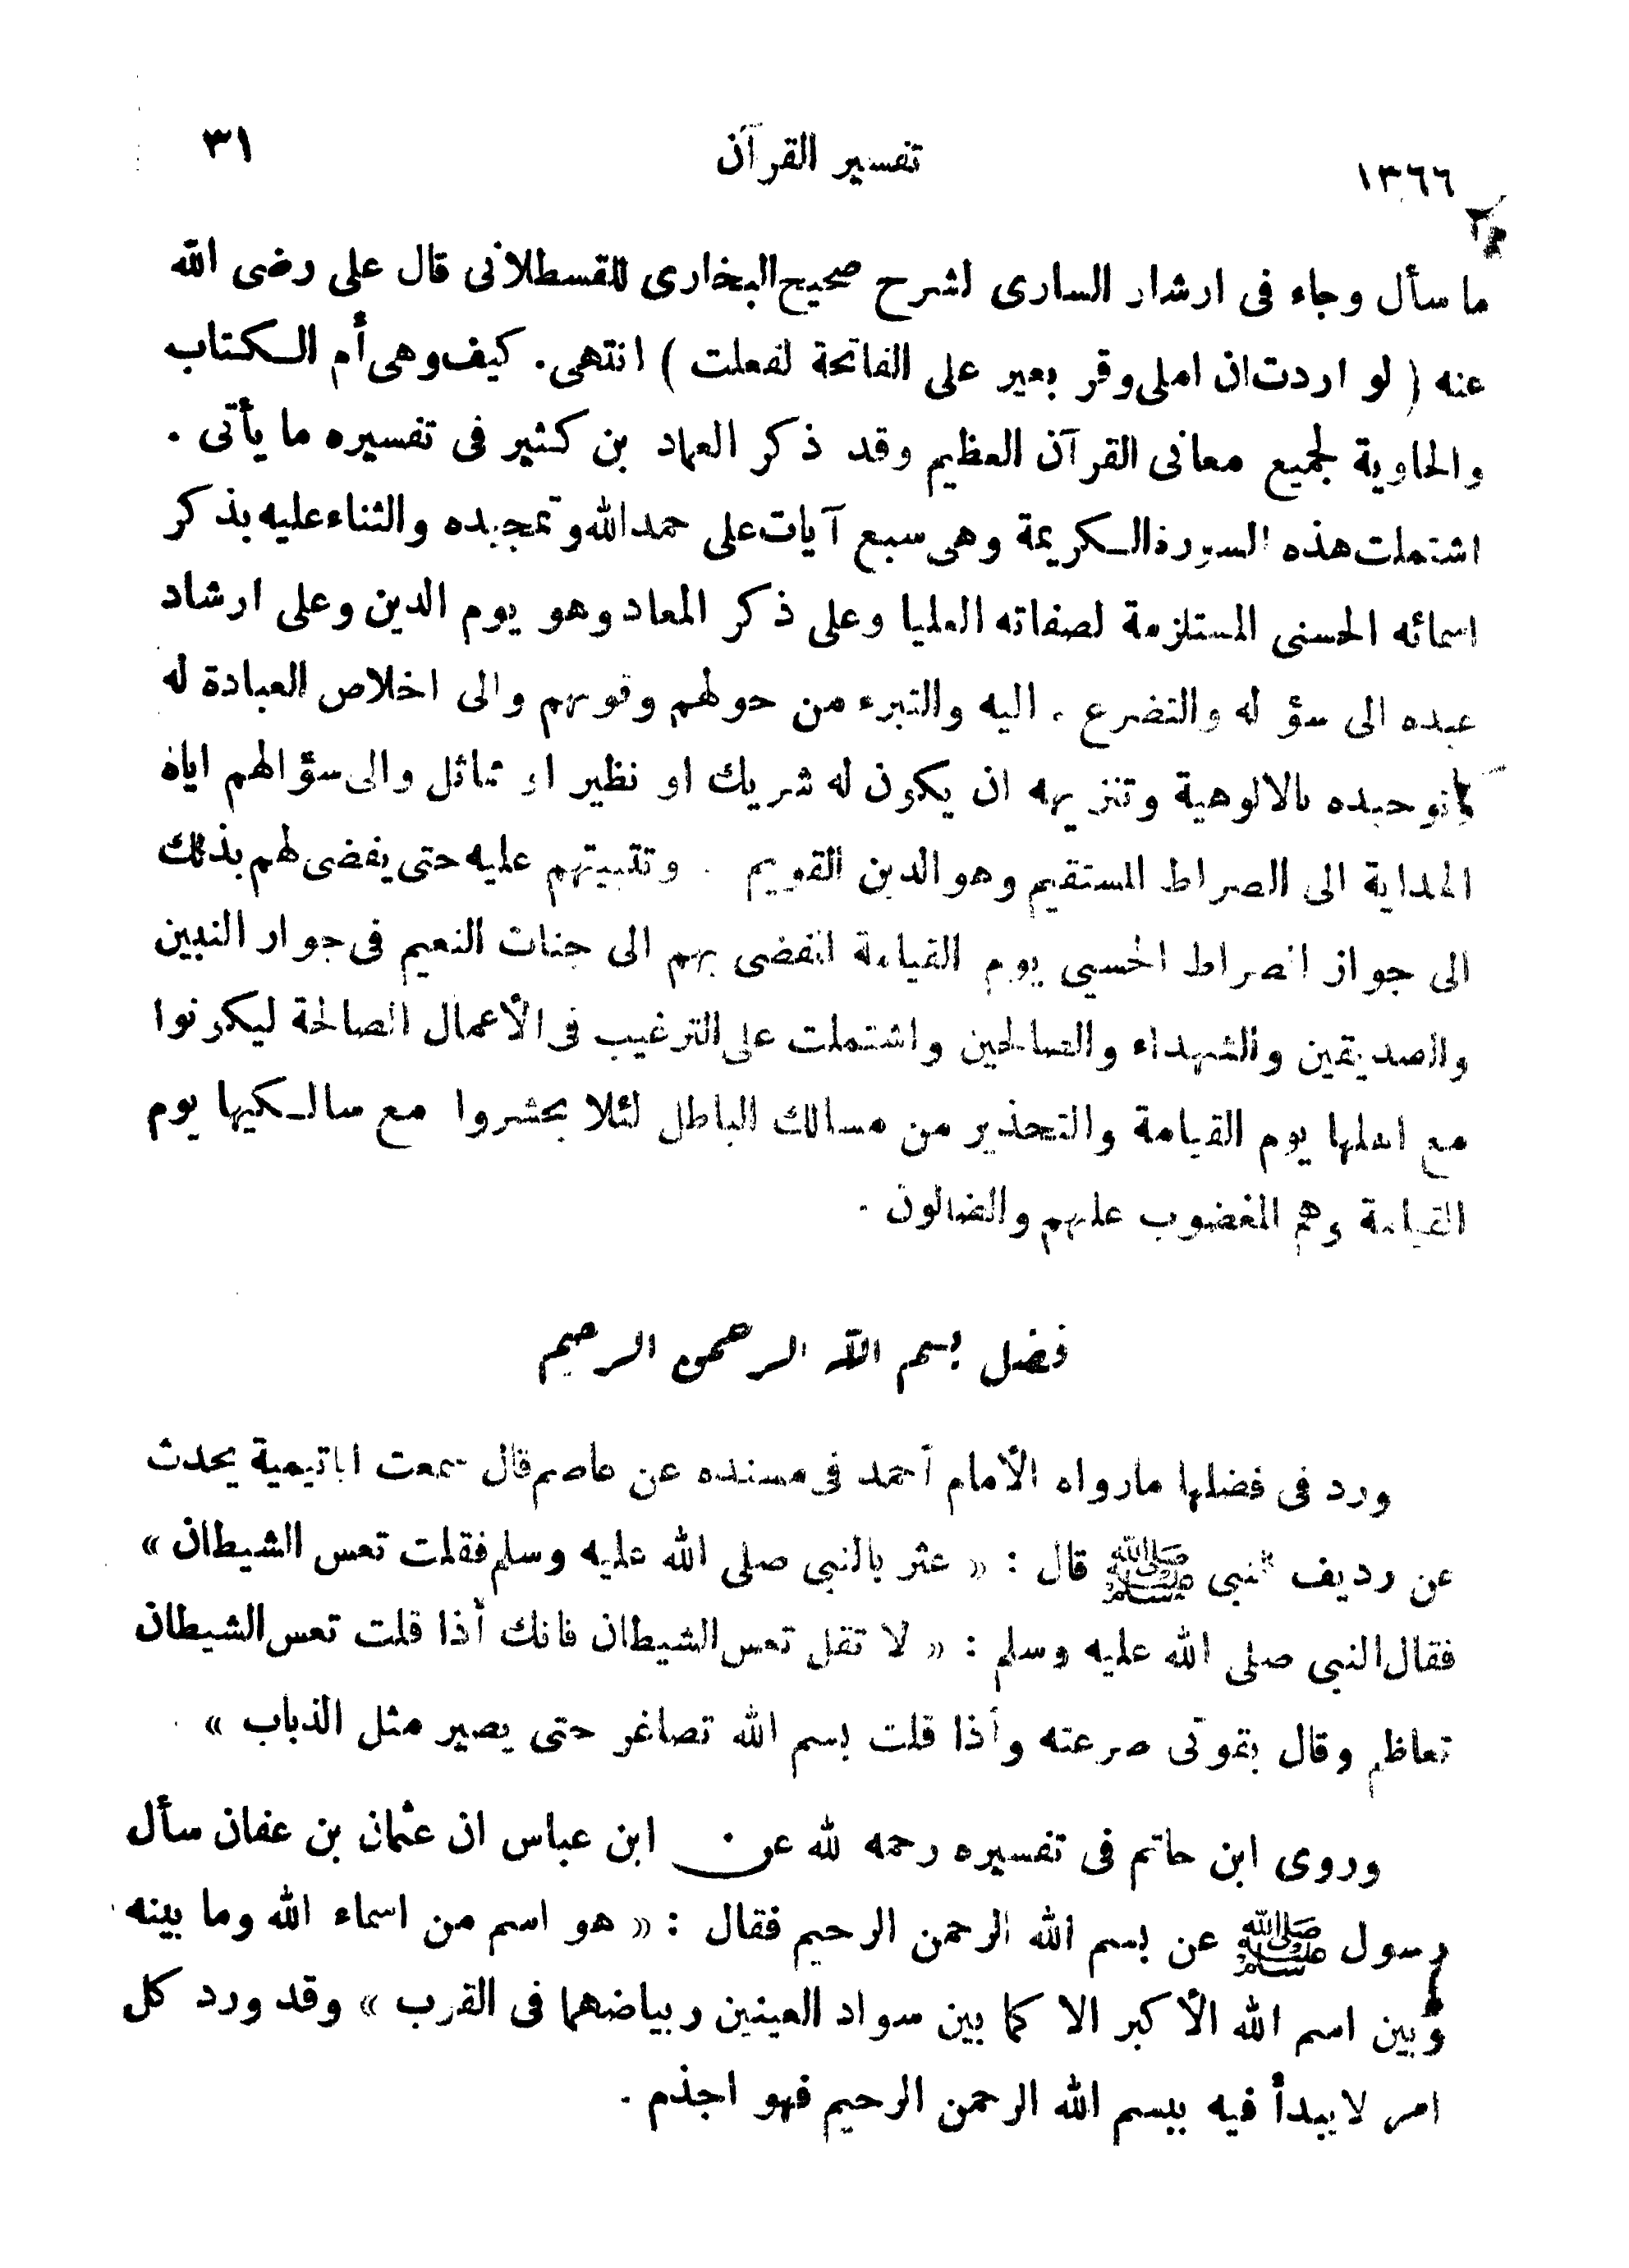 ١٣٦٦ تفسير القرآن ٣١
ما سأل وجاء فى ارشار السارى لشرح صحيح البخارى للقسطلانى قال على رضى الله
عنه ( لو اردت ان املى وقر بعير على الفاتحة لفعلت ) انتهى . كيف وهى أم الكتاب
والحاوية لجميع معانى القرآن العظيم وقد ذكر العماد بن كثير فى تفسيره ما يأتى .
اشتملت هذه السورة الكريمة وهى سبع آيات على حمد الله وتمجيده والثناء عليه بذكر
اسمائه الحسنى المستلزمة لصفاته العليا وعلى ذكر المعاد وهو يوم الدين وعلى ارشاد
عبده الى سؤ له والتضرع . اليه والتبرء من حولهم وقوتهم والى اخلاص العبادة له
وتوحيده بالالوهية وتنزيهه ان يكون له شريك او نظير او مماثل والى سؤالهم اياه
الهداية الى الصراط المستقيم وهو الدين القويم . وتثبيتهم عليه حتى يفضى لهم بذلك
الى جواز الصراط الحسى يوم القيامة المفضى بهم الى جنات النعيم فى جوار النبيين
والصديقين والشهداء والصالحين واشتملت على الترغيب فى الأعمال الصالحة ليكونوا
مع اهلها يوم القيامة والتحذير من مسالك الباطل لئلا يحشروا مع سالكيها يوم
القيامة وهم المغضوب عليهم والضالون .
فضل بسم الله الرحمن الرحيم
ورد فى فضلها مارواه الأمام أحمد فى مسنده عن عاصم قال سمعت اباتيمية يحدث
عن رديف النبى ﷺ قال : « عثر بالنبى صلى الله عليه وسلم فقلت تعس الشيطان »
فقال النبى صلى الله عليه وسلم : « لا تقل تعس الشيطان فانك أذا قلت تعس الشيطان
تعاظم وقال بقوتى صرعته وأذا قلت بسم الله تصاغر حتى يصير مثل الذباب » .
وروى ابن حاتم فى تفسيره رحمه لله عن ابن عباس ان عثمان بن عفان سأل
رسول ﷺ عن بسم الله الرحمن الرحيم فقال : « هو اسم من اسماء الله وما بينه
وبين اسم الله الأكبر الا كما بين سواد العينين وبياضهما فى القرب » وقد ورد كل
امر لا يبدأ فيه ببسم الله الرحمن الرحيم فهو اجذم .